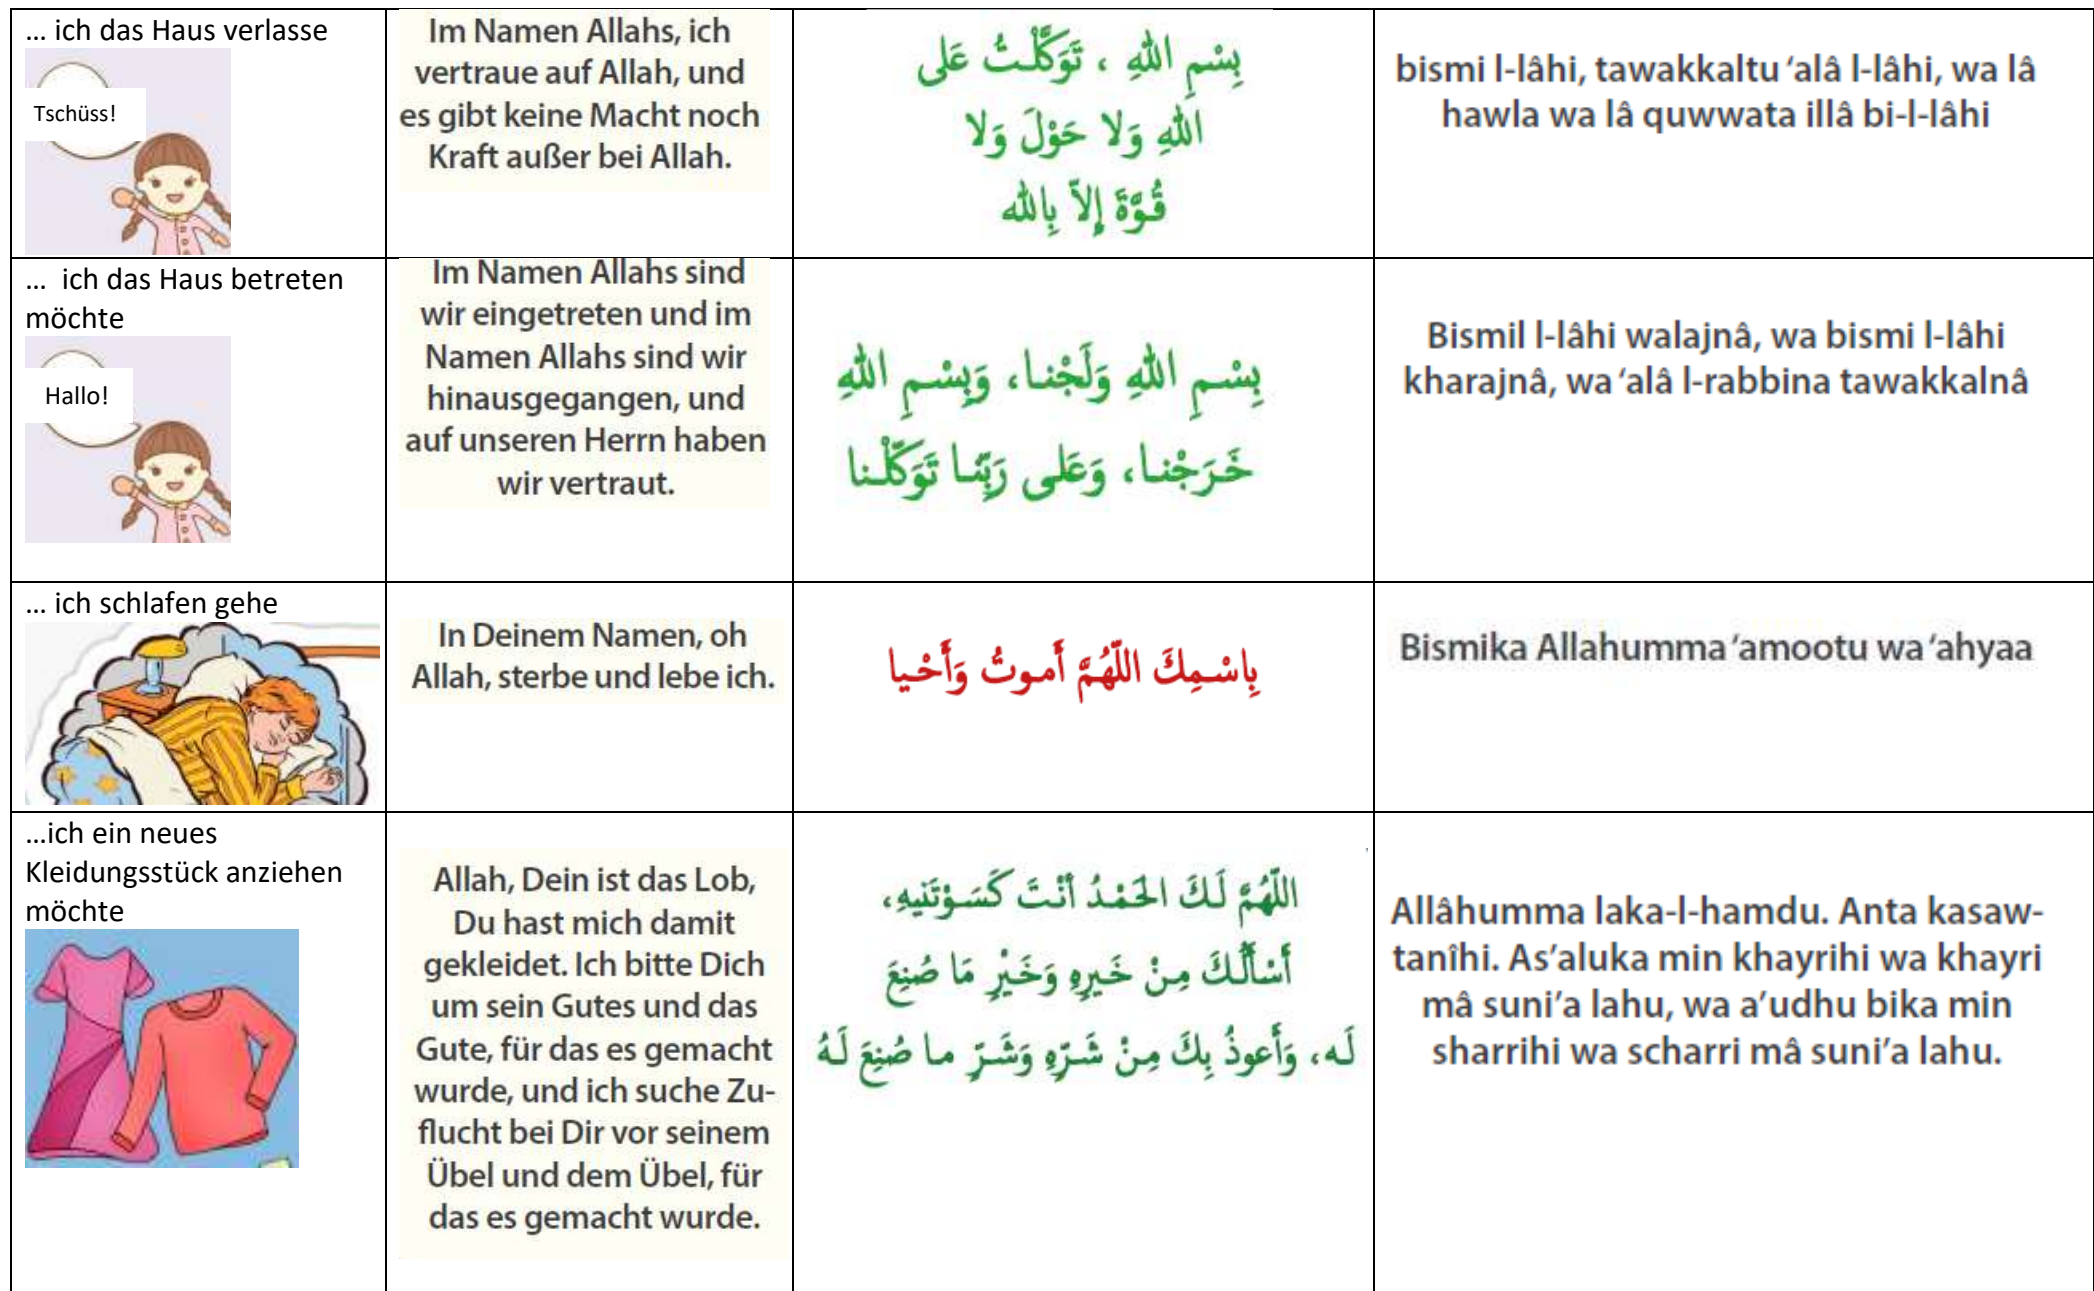 … ich das Haus verlasse
Tschüss!
Im Namen Allahs, ich
vertraue auf Allah, und
es gibt keine Macht noch
Kraft außer bei Allah.
بِسْمِ اللهِ ، تَوَكَّلْتُ عَلى
اللهِ وَلا حَوْلَ وَلا
قُوَّةَ إِلاّ بِالله
bismi l-lâhi, tawakkaltu ‘alâ l-lâhi, wa lâ
hawla wa lâ quwwata illâ bi-l-lâhi
… ich das Haus betreten
möchte
Hallo!
Im Namen Allahs sind
wir eingetreten und im
Namen Allahs sind wir
hinausgegangen, und
auf unseren Herrn haben
wir vertraut.
بِسْـمِ اللهِ وَلَجْنـا، وَبِسْـمِ اللهِ
خَـرَجْنـا، وَعَلـى رَبِّنـا تَوَكَّلْـنا
Bismil l-lâhi walajnâ, wa bismi l-lâhi
kharajnâ, wa ‘alâ l-rabbina tawakkalnâ
… ich schlafen gehe
In Deinem Namen, oh
Allah, sterbe und lebe ich.
بِاسْـمِكَ اللّهُمَّ أَمـوتُ وَأَحْـيا
Bismika Allahumma ‘amootu wa ‘ahyaa
…ich ein neues
Kleidungsstück anziehen
möchte
Allah, Dein ist das Lob,
Du hast mich damit
gekleidet. Ich bitte Dich
um sein Gutes und das
Gute, für das es gemacht
wurde, und ich suche Zu-
flucht bei Dir vor seinem
Übel und dem Übel, für
das es gemacht wurde.
اللّهُمَّ لَـكَ الحَـمْـدُ أنْـتَ كَسَـوْتَنيهِ،
أَسْأَلُـكَ مِـنْ خَـيرِهِ وَخَـيْرِ مَا صُنِعَ
لَـه، وَأَعوذُ بِكَ مِـنْ شَـرِّهِ وَشَـرِّ مـا صُنِعَ لَـهُ
Allâhumma laka-l-hamdu. Anta kasaw-
tanîhi. As’aluka min khayrihi wa khayri
mâ suni’a lahu, wa a’udhu bika min
sharrihi wa scharri mâ suni’a lahu.